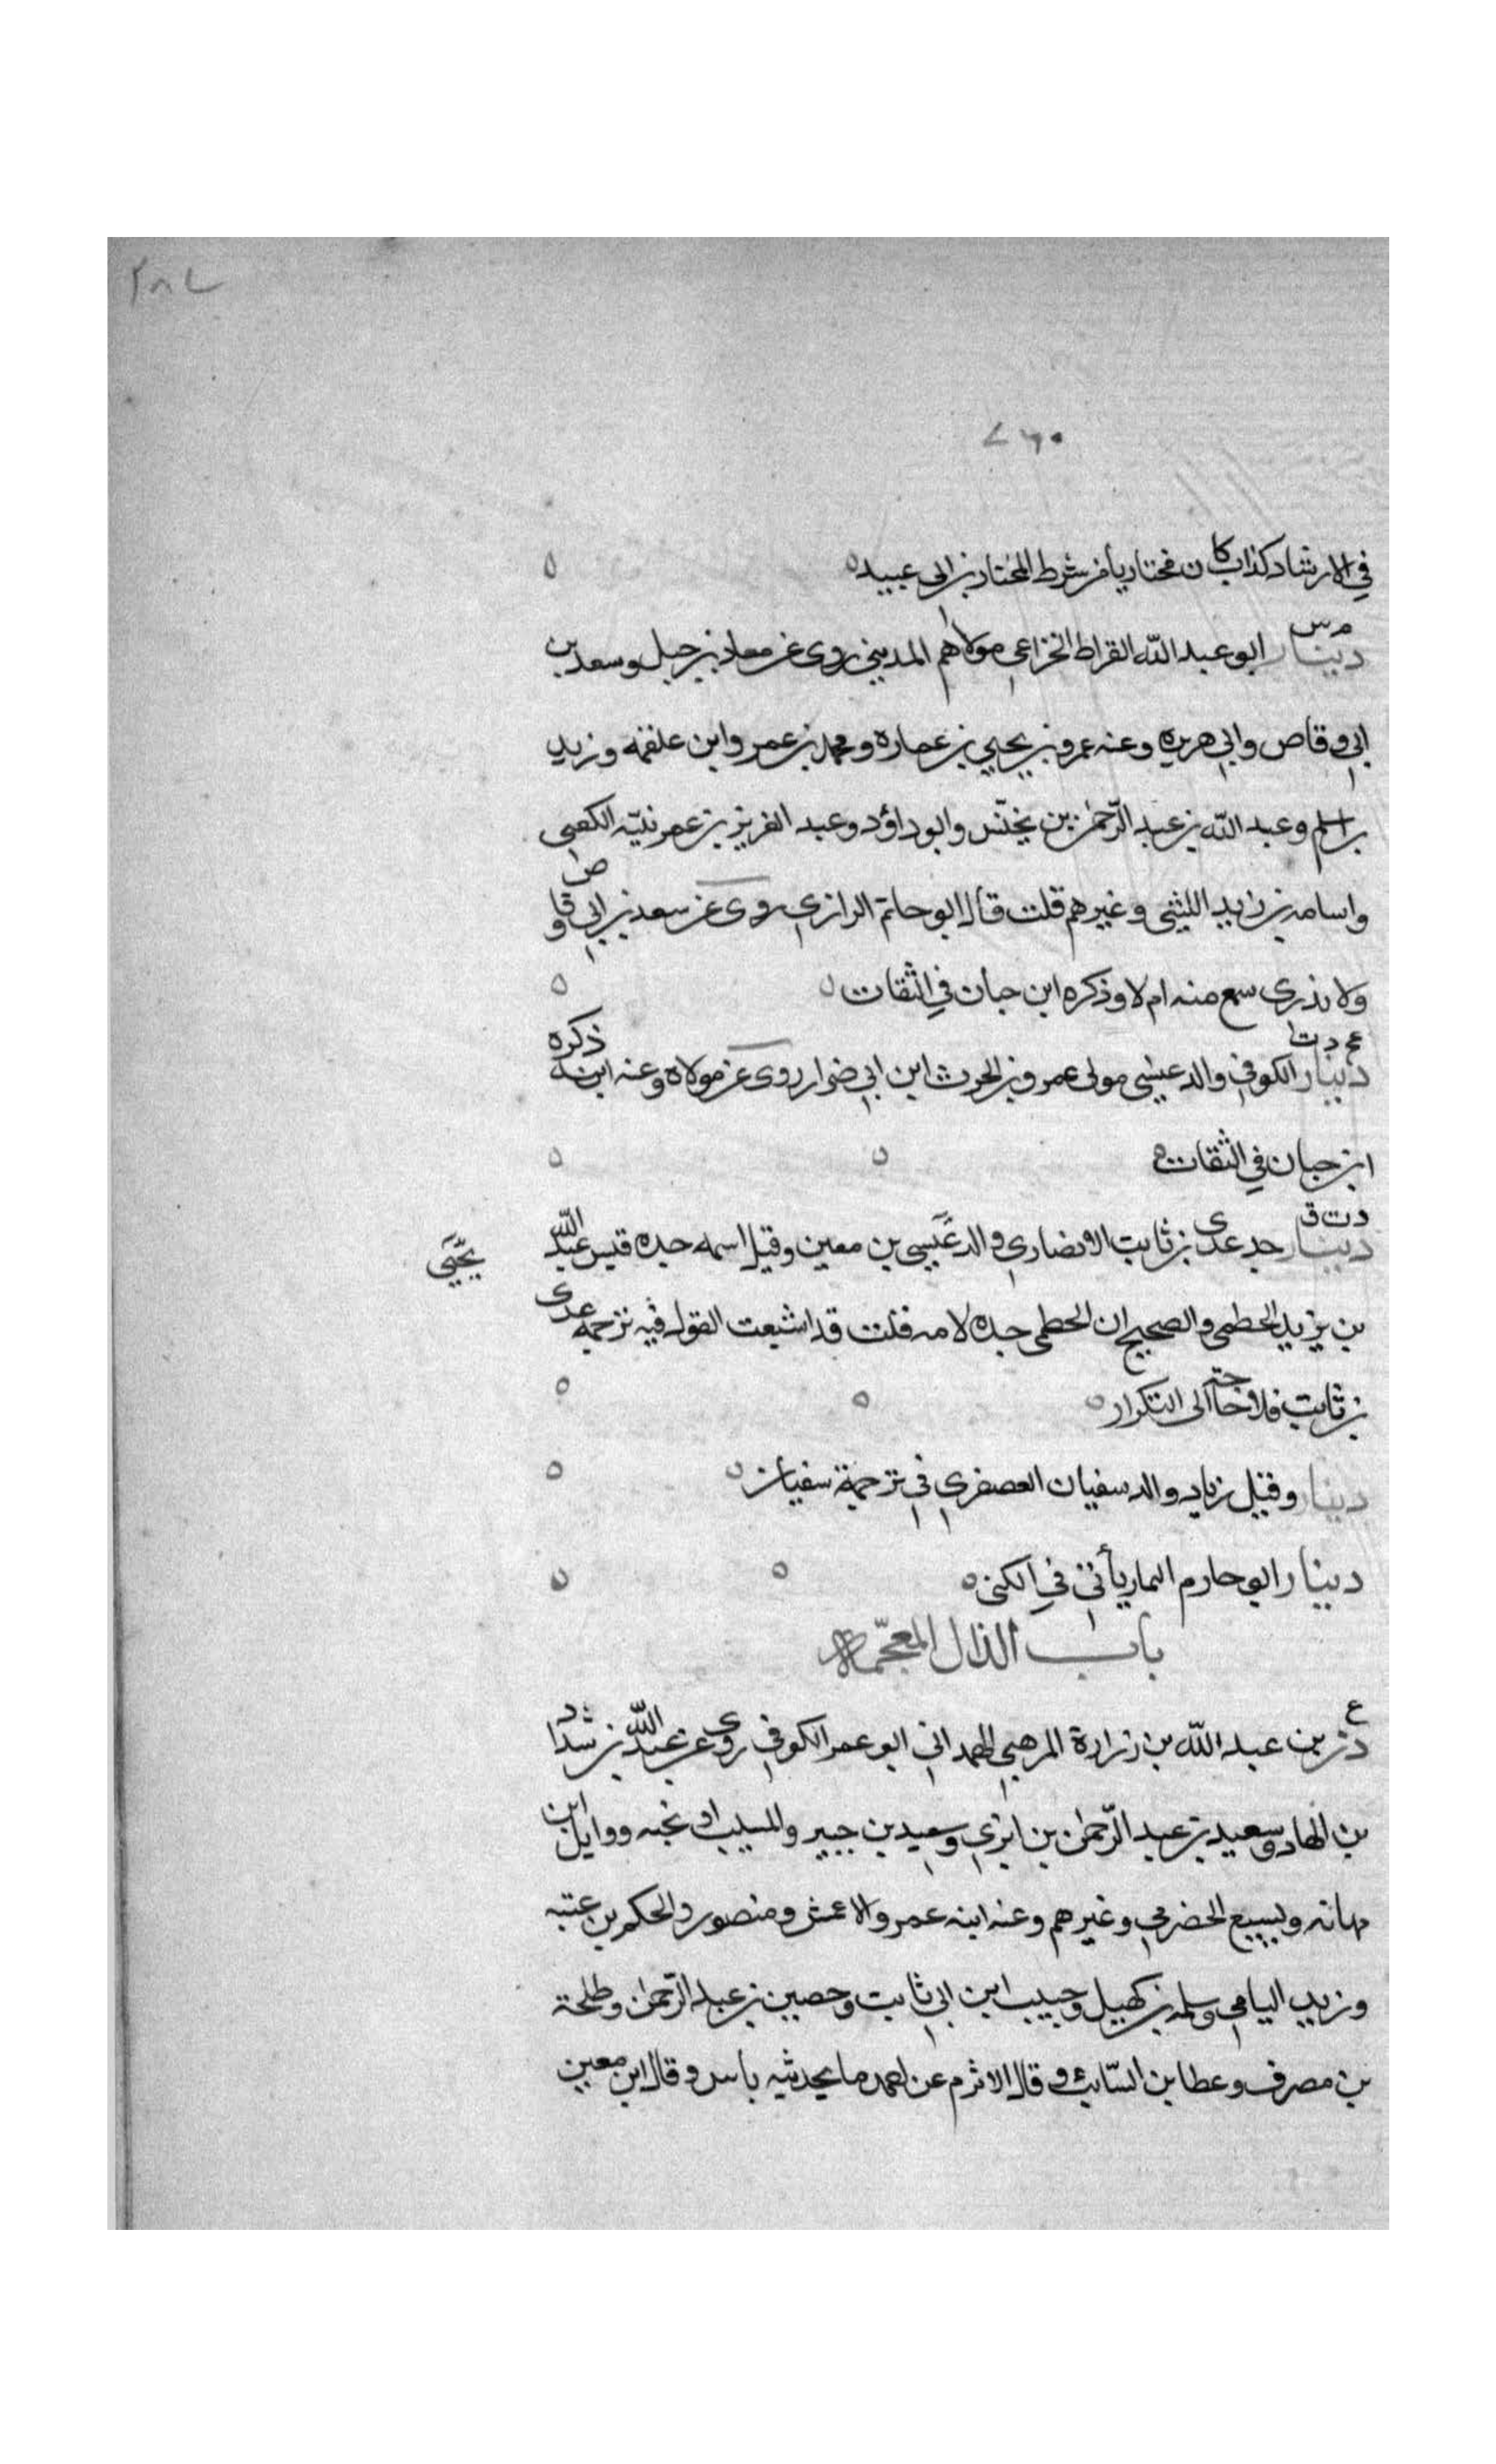 ٢٨٧
٧٦٠
في الارشاد كذاب كان مختاريا من شرط المختار بن ابي عبيد
م س
دينار ابو عبد الله القراظ الخزاعي مولاهم المديني روى عن معاذ بن جبل وسعد بن
ابي وقاص وابي هريره وعنه عمرو بن يحيى بن عماره ومحمد بن عمر وابن علقمه وزيد
بن اسلم وعبد الله بن عبد الرحمن بن يخنّس وابو داؤد وعبد العزيز بن عمر نبيّه الكعبي
واسامه بن زيد الليثي وغيرهم قلت قال ابو حاتم الرازي روى عن سعد بن ابي وقاص
ولا ندري سمع منه ام لا وذكره ابن حبان في الثقات
عخ د ت
دينار الكوفي والد عيسى مولى عمرو بن الحرث ابن ابي ضرار روى عن مولاه وعنه ابنه ذكره
ابن حبان في الثقات
د ت ق
دينار جد عدى بن ثابت الانصاري والد عيسى بن معين وقيل اسمه جده قيس عبد الله
يحيى
بن يزيد الخطمي والصحيح ان الخطمي جده لامه قلت قد اشبعت القول فيه ترجمه عدى
بن ثابت فلا حاجة الى التكرار
دينار وقيل زياد والد سفيان العصفري في ترجمة سفيان
دينار ابو حازم التمار يأتى في الكنى
باب الذال المعجمة
ع
ذر بن عبد الله بن زرارة المرهبي الهمداني ابو عمر الكوفي روى عن عبد الله بن شداد
بن الهاد وسعيد بن عبد الرحمن بن ابزي وسعيد بن جبير والمسيب او نجبه ووايل ابن
مهانه ويسيع الحضرمي وغيرهم وعنه ابنه عمر والاعمش ومنصور والحكم بن عتبه
وزبيد اليامي وسلمه بن كهيل وحبيب ابن ابي ثابت وحصين بن عبد الرحمن وطلحة
بن مصرف وعطا بن السّايب وقال الاثرم عن احمد ما بحديثه باس وقال ابن معين